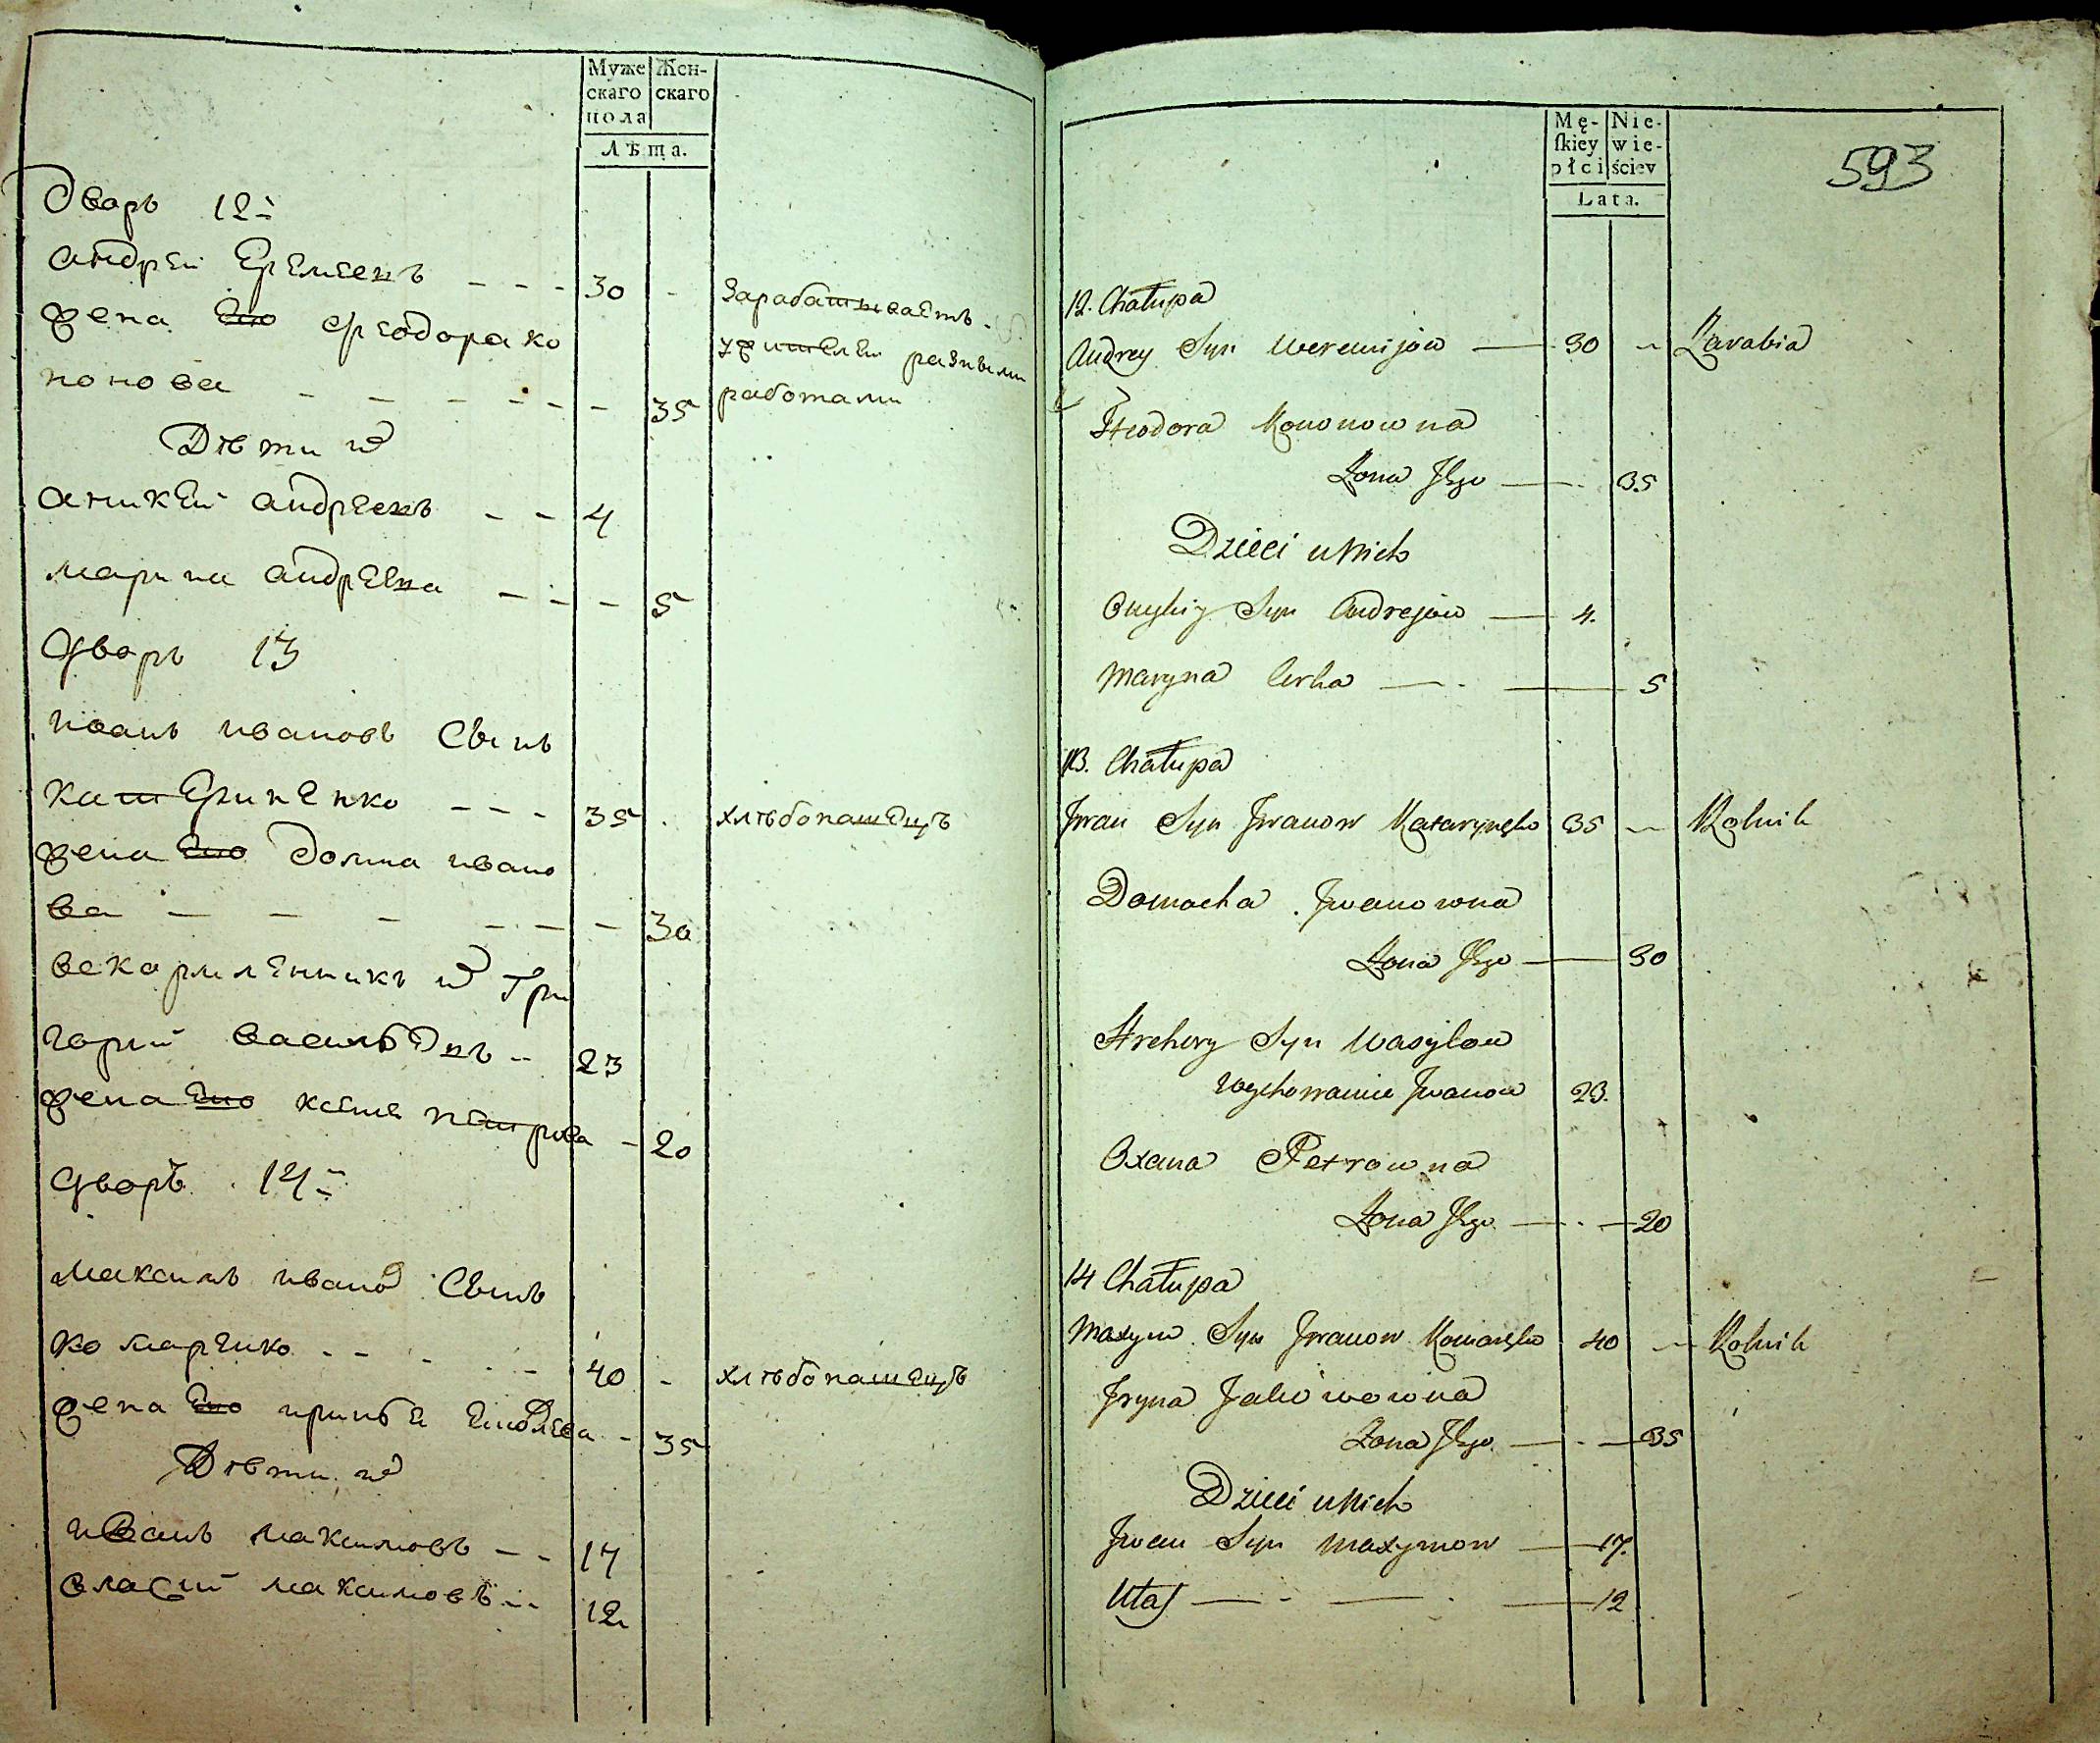 Муже
скаго
пола
Жен-
скаго
Лѣта.
Дворъ 12й
Андрей Еремеевъ - - - 30 -
Жена Его Феодора Ко
нонова - - - - - - 35
Зарабатываетъ
разными
работами
Дѣти их
Аникей Андреевъ - - 4
Марина Андреева - - - 5
Дворъ 13
Иванъ Ивановъ Сынъ
Катериненко - - - 35 .
хлѣбопашецъ
Жена Его Домна Ивано
ва - - - - - - 30
Вскормленникъ их Гри
горий Васильевъ - 23
Жена Его Ксеня Петрова - 20
Дворъ 14й
Максимъ Иванов Сынъ
Комаренко - - - - - 40 -
хлѣбопашецъ
Жена Его Иринья - 35
Дѣти их
Иванъ Максимовъ - - 17
Власий Максимовъ - - 12
593
Mę-
skiey
płci
Nie-
wie-
ściey
Lata.
12. Chałupa
Andrey Syn Weremijow — 30 - Zarabia
Fteodora Kononowna
Żona Jego — 35
Dzieci u Nich
Onykiy Syn Andrejow — 4.
Maryna Corka — - — 5
13. Chałupa
Jwan Syn Jwanow Katarynęko 35 - Rolnik
Domacha Jwanowna
Żona Jego — 30
Hrehory Syn Wasylow
wychowaniec Jwanow 23.
Oxana Petrowna
Żona Jego — - — 20
14 Chałupa
Maxym Syn Jwanow Komaręko 40 - Rolnik
Jryna Jakowowna
Żona Jego — - — 35
Dzieci u Nich
Jwan Syn Maxymow — 17.
Ułas — - — - — 12